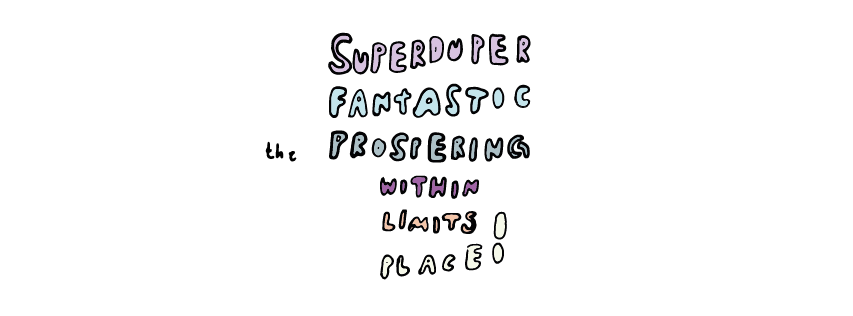 SUPERDUPER
FANTASTIC
the PROSPERING
WITHIN
LIMITS
PLACE!